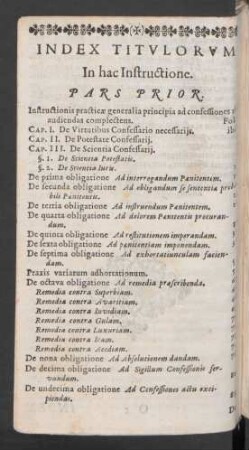 INDEX TITVLORVM
In hac Instructione.
PARS PRIOR.
Instructionis practicæ generalia principia ad confessiones
audiendas complectens.
CAP. I. De Virtutibus Confessario necessarijs.
CAP. II. De Potestate Confessarij.
CAP. III. De Scientia Confessarij.
§. 1. De Scientia Potestatis.
§. 2. De Scientia Iuris.
De prima obligatione Ad interrogandum Pænitentem.
De secunda obligatione Ad obligandum se sententiæ proba-
bili Pænitentis.
De tertia obligatione Ad instruendum Pænitentem.
De quarta obligatione Ad dolorem Pænitentis procuran-
dum.
De quinta obligatione Ad restitutionem imperandam.
De sexta obligatione Ad pænitentiam imponendam.
De septima obligatione Ad exhortatiunculam facien-
dam.
Praxis variarum adhortationum.
De octava obligatione Ad remedia præscribenda.
Remedia contra Superbiam.
Remedia contra Avaritiam.
Remedia contra Invidiam.
Remedia contra Gulam.
Remedia contra Luxuriam.
Remedia contra Iram.
Remedia contra Acediam.
De nona obligatione Ad Absolutionem dandam.
De decima obligatione Ad Sigillum Confessionis ser-
vandum.
De undecima obligatione Ad Confessiones actu exci-
piendas.